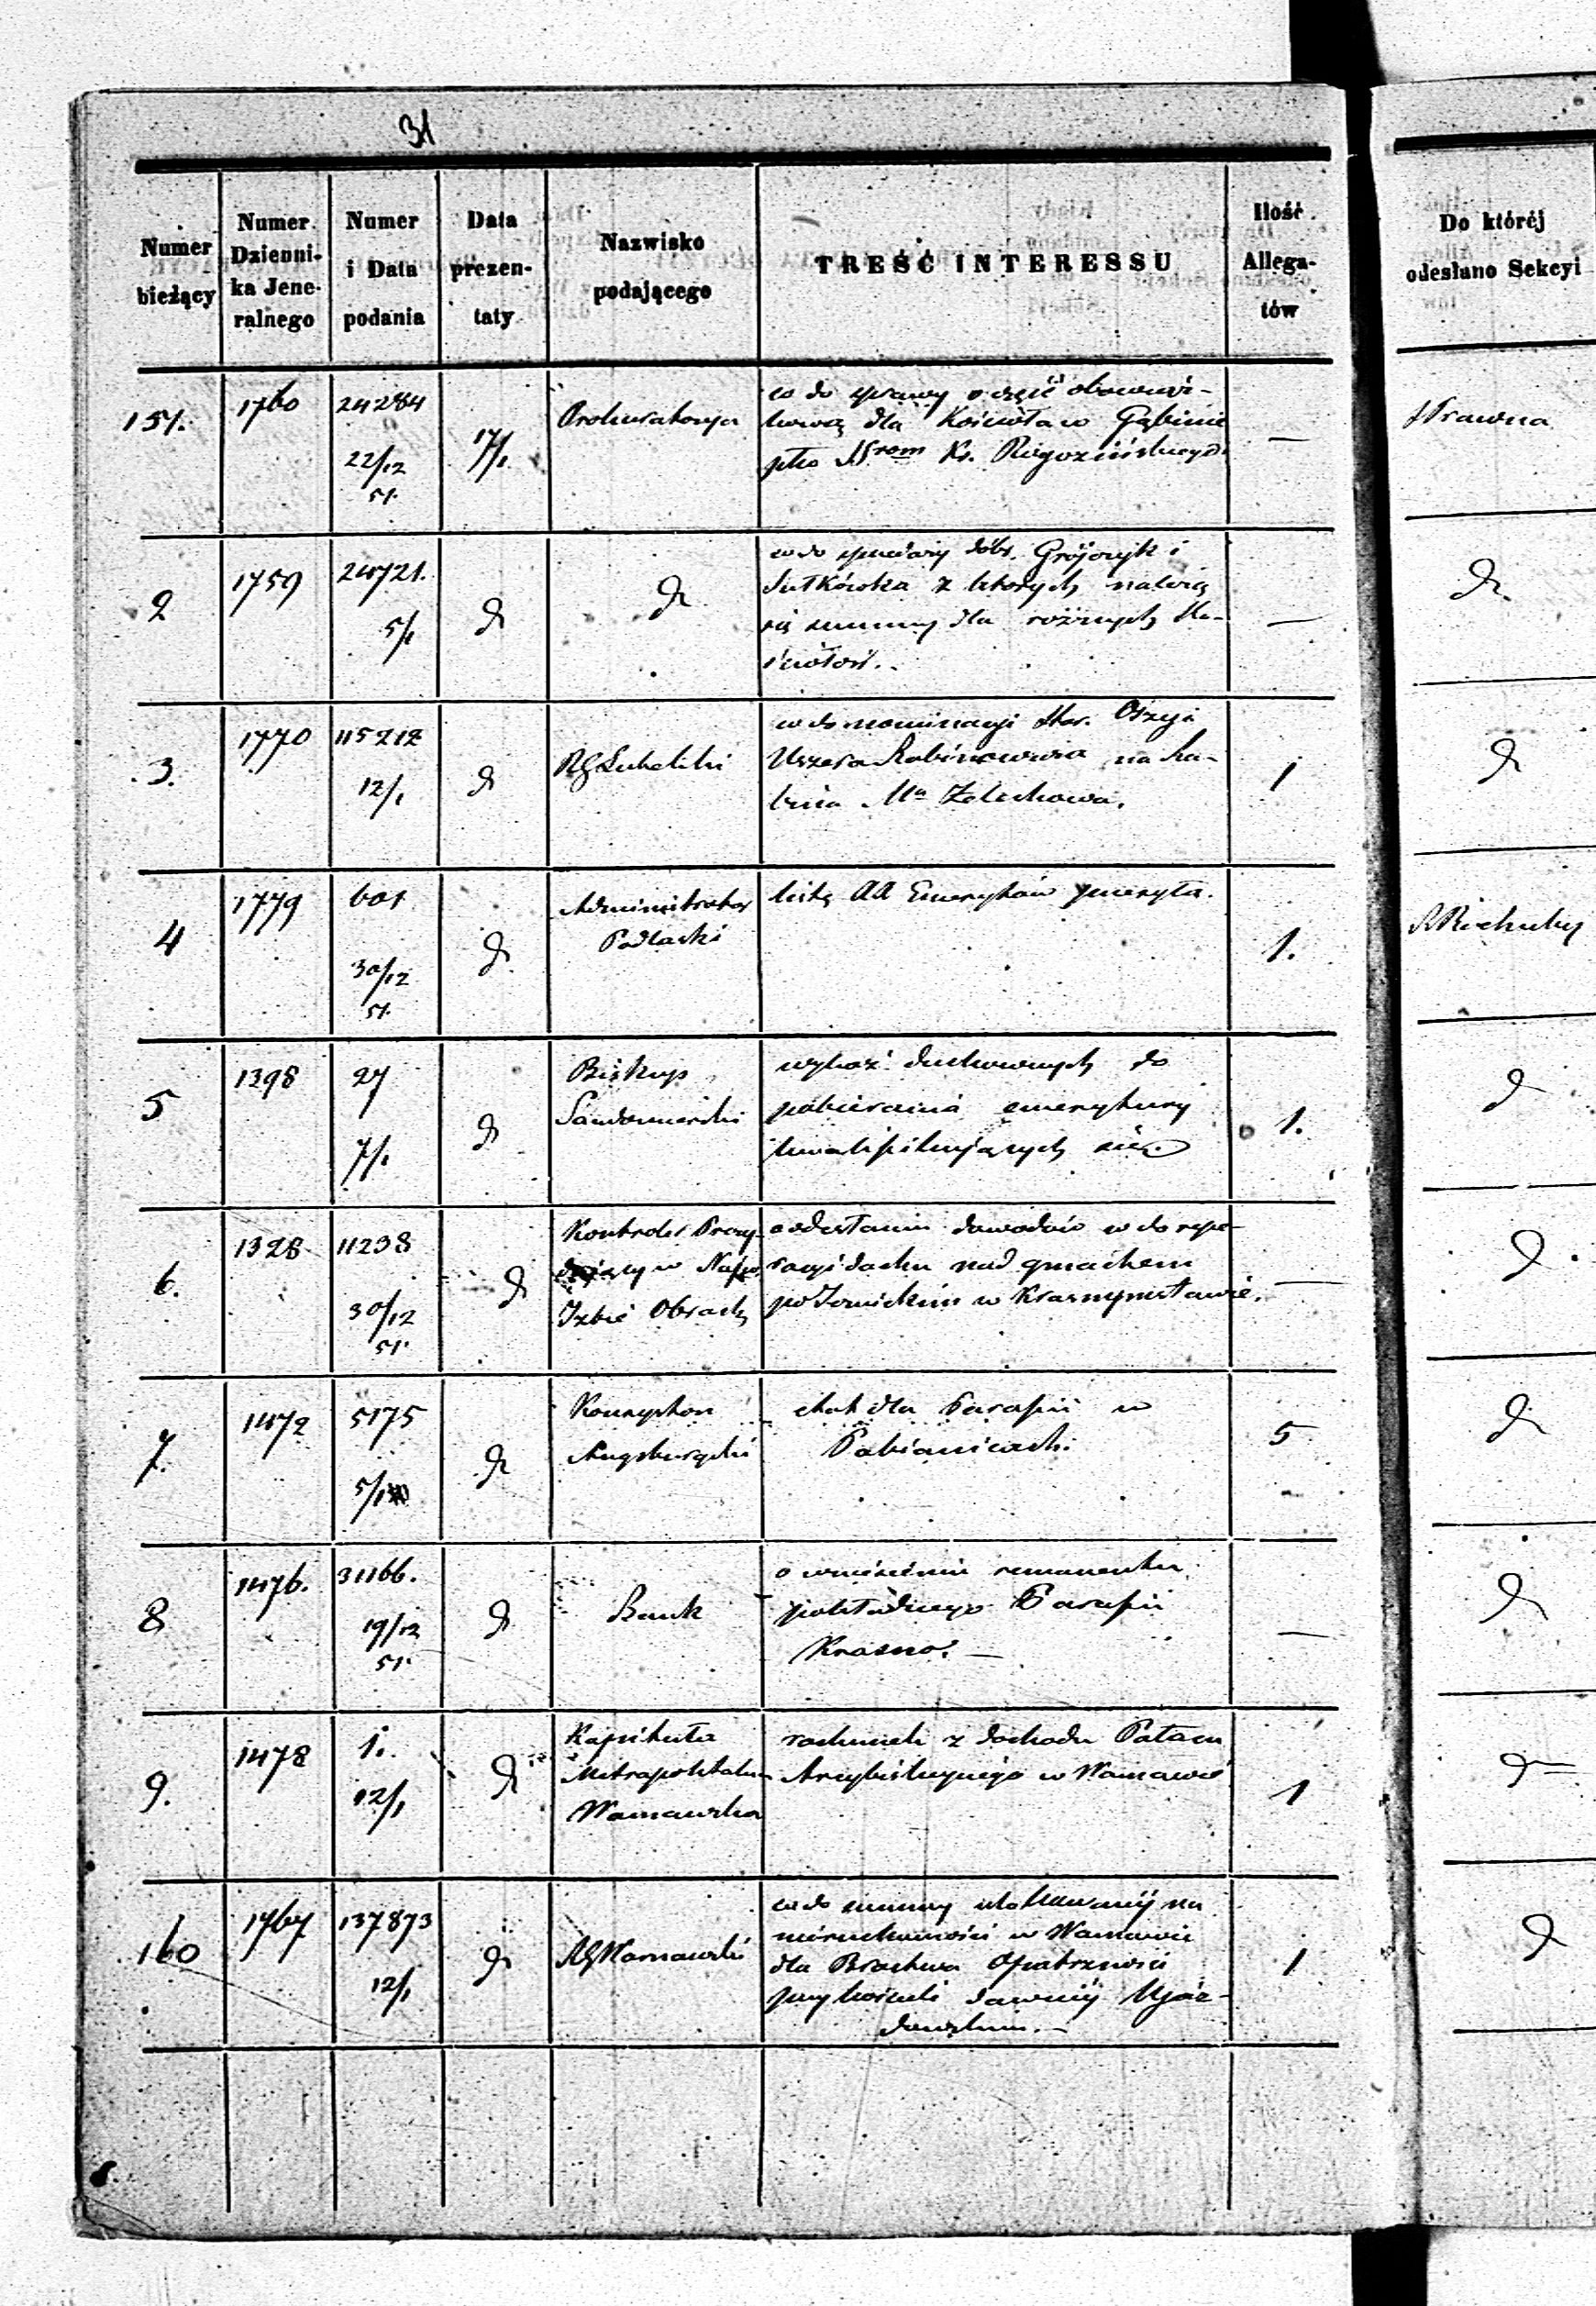 31
Numer bieżący
Numer Dziennika Jeneralnego
Numer i Data podania
Data prezentaty
Nazwisko podającego
TREŚĆ INTERESSU
Ilość Allegatów
Do któréj odesłano Sekcyi
151. 1760 24284 22/12 51. 17/1 Prokuratorya
co do sprawy o część obowiąz-
kową dla Kościoła w Gąbinie
Ks. Rogozińskiego.
— Prawna
2 1759 24721. 5/1 d d
co do sprzedaży dóbr Grójczyk i
Sutkówka z których należą
się summy dla różnych Ko-
ściołów.
— d
3. 1770 115212 12/1 d RG Lubelski
co do nominacyi Star. Oszyi
Uszera Rabinowicza na Ra-
bina Mta Żelechowa.
1 d
4 1779 601 30/12 51. d Administrator
Podlaski
listę AA Emerytów
1.
5 1398 27 7/1 d Biskup
Sandomierski
wykaz duchownych do
pobierania emerytury
kwalifikujących się.
1. d
6. 1328 11238 30/12 51. d Kontroler Prezy-
dujący w Najw.
Izbie Obrach.
o odesłanie dowodów co do repe-
racyi dachu nad gmachem
w Krasnymstawie.
— d
7. 1472 5175 5/1 d Konsystorz
Augsburgski
etat dla Parafii w
Pabianicach.
5 d
8 1476. 31166. 19/12 51. d Bank
o wniesieniu remanentu
Parafii
Krasno. —
— d
9. 1478 1. 12/1 d Kapituła
Metropolitalna
Warszawska
rachunek z dochodu Pałacu
Arcybiskupiego w Warszawie
1 d
160 1767 137873 12/1 d RG Warszawski
co do summy ulokowanej na
nieruchomości w Warszawie
dla Bractwa Opatrzności
przy kościele dawniéj Ujaz-
dowskim. —
1 d